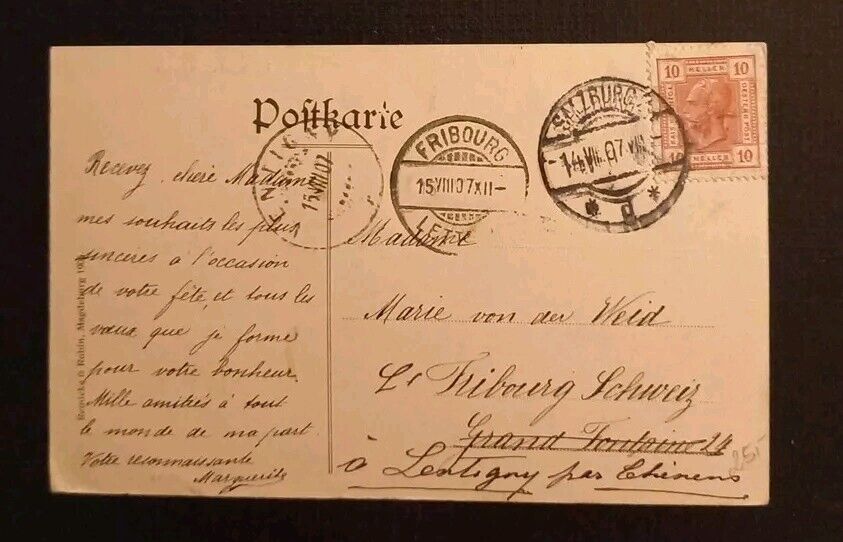 Postkarte
Recevez, chère Madame
mes souhaits les plus
sincères à l'occasion
de votre fête, et tous les
vœux que je forme
pour votre bonheur.
Mille amitiés à tout
le monde de ma part.
Votre reconnaissante
Marguerite
Madame
Marie von der Weid
Fribourg Schweiz
Grand Fontaine 24
à Lentigny par Chénens
FRIBOURG
15 VIII 07 XII-
LETT
15 VIII 07
SALZBURG 2
14 VIII 07
* d *
10 HELLER 10
10 HELLER 10
Magdeburg
25.-